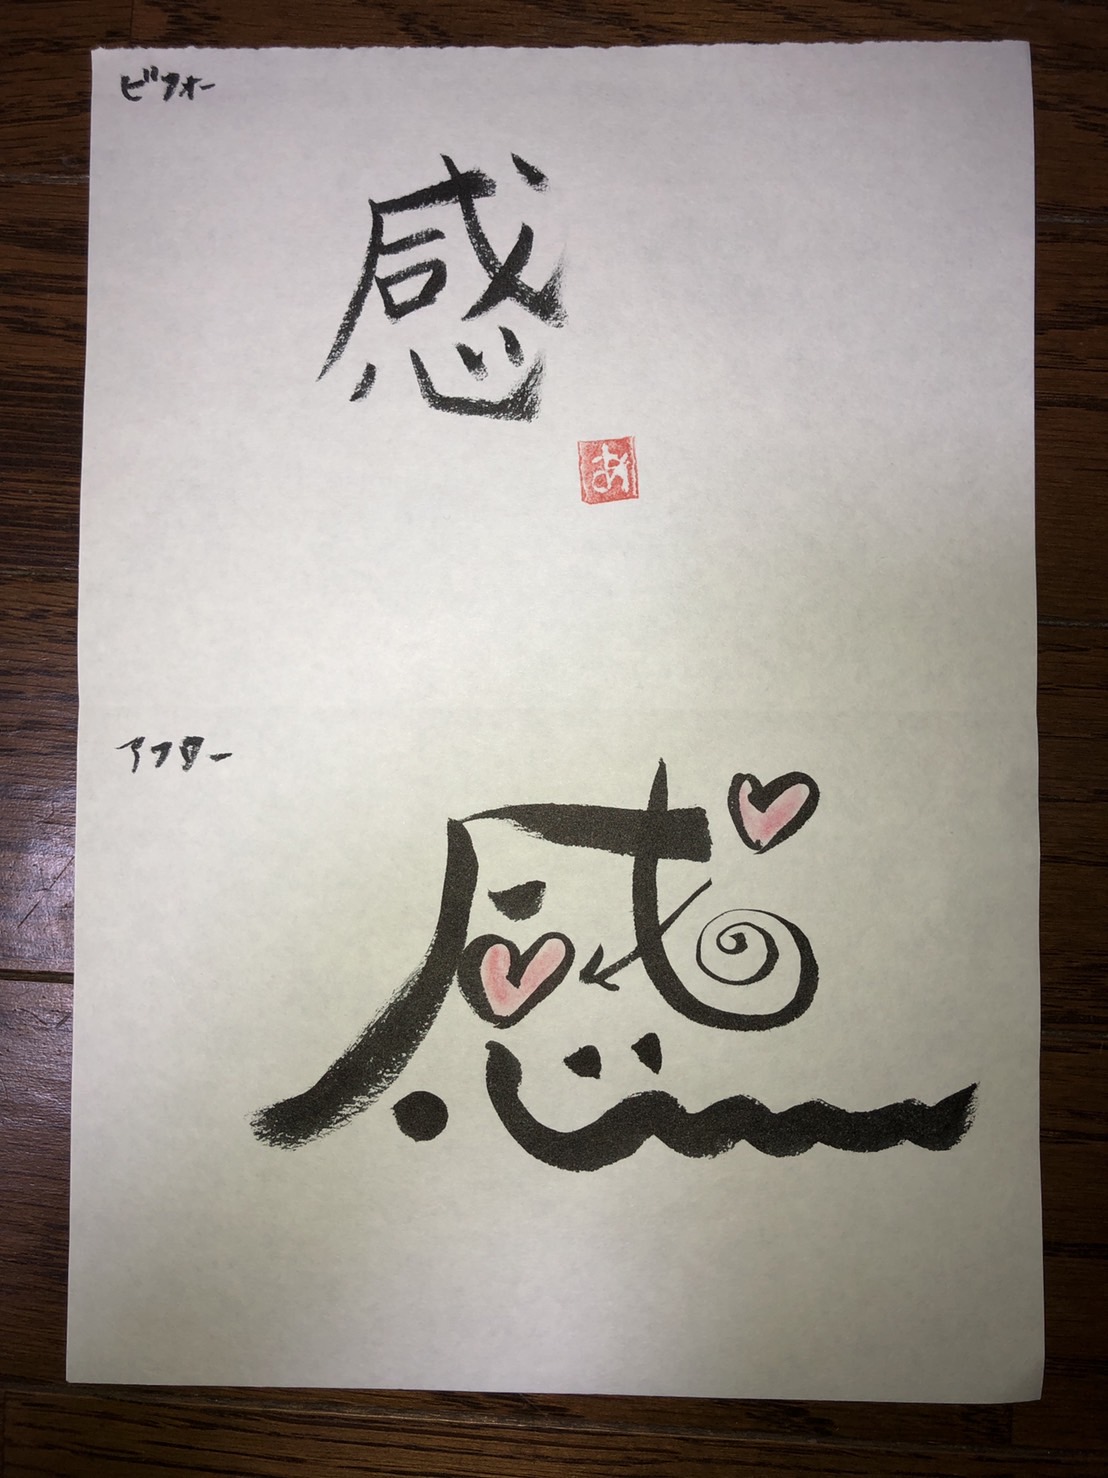 ビフォー
感
あ
アフター
感